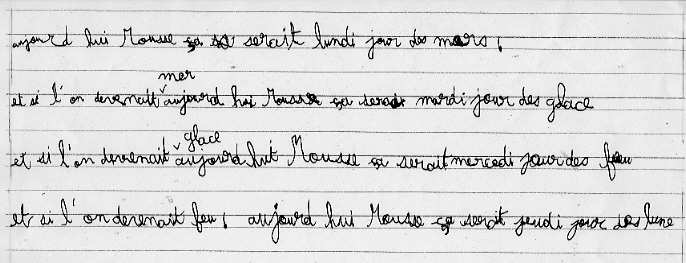 aujourd hui Mousse ça serait lundi jour des mers,
mer
et si l'on devenait aujourd hui Mousse ça serait mardi jour des glace
glace
et si l'on devenait aujourd hui Mousse ça serait mercredi jour des feu
et si l'on devenait feu, aujourd hui Mousse ça serait jeudi jour des lune